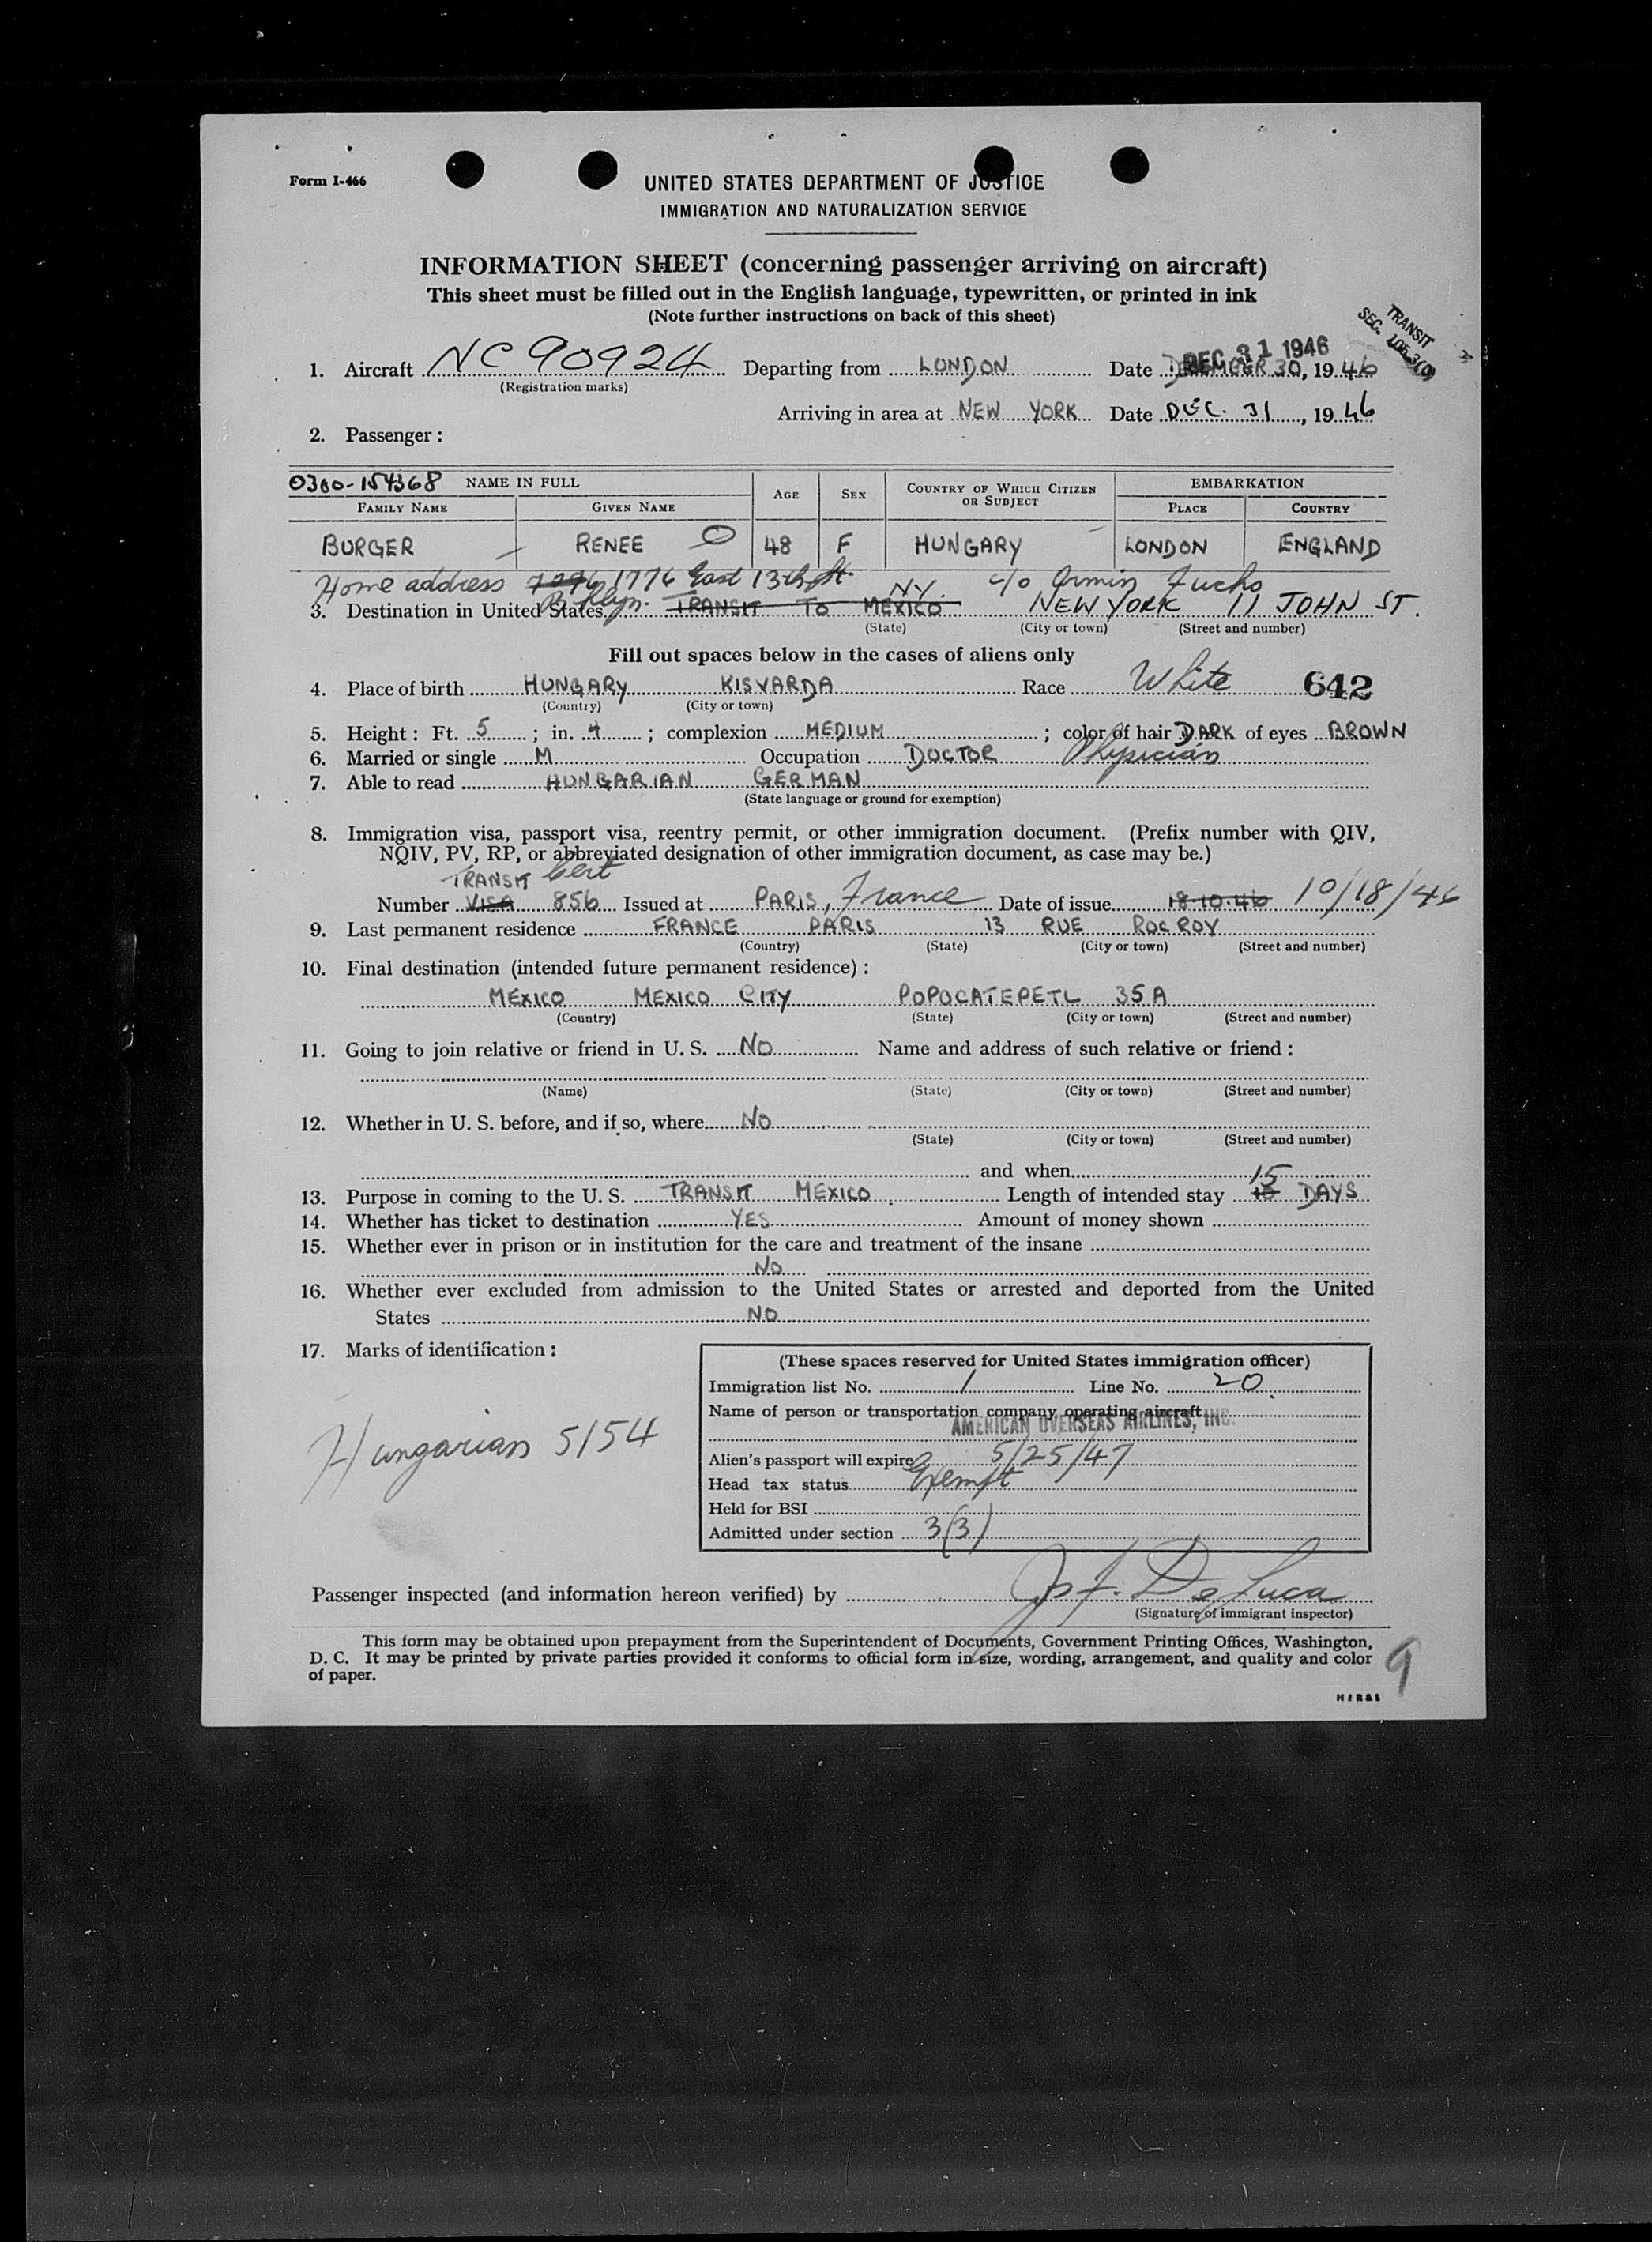 Form I-466
UNITED STATES DEPARTMENT OF JUSTICE
IMMIGRATION AND NATURALIZATION SERVICE
INFORMATION SHEET (concerning passenger arriving on aircraft)
This sheet must be filled out in the English language, typewritten, or printed in ink
(Note further instructions on back of this sheet)
TRANSIT
SEC.
DEC 31 1946
1. Aircraft NC 90924 Departing from LONDON Date DECEMBER 30, 1946
(Registration marks)
Arriving in area at NEW YORK Date DEC. 31, 1946
2. Passenger:
0300-154368 NAME IN FULL AGE SEX COUNTRY OF WHICH CITIZEN OR SUBJECT EMBARKATION
FAMILY NAME GIVEN NAME PLACE COUNTRY
BURGER RENEE 48 F HUNGARY LONDON ENGLAND
Home address 1776 East 13th St. NY. c/o Armin Fuchs
Bklyn.
3. Destination in United States TRANSIT TO MEXICO NEW YORK 11 JOHN ST.
(State) (City or town) (Street and number)
Fill out spaces below in the cases of aliens only
4. Place of birth HUNGARY KISVARDA Race White 642
(Country) (City or town)
5. Height: Ft. 5; in. 4; complexion MEDIUM; color of hair DARK of eyes BROWN
6. Married or single M Occupation DOCTOR Physician
7. Able to read HUNGARIAN GERMAN
(State language or ground for exemption)
8. Immigration visa, passport visa, reentry permit, or other immigration document. (Prefix number with QIV,
NQIV, PV, RP, or abbreviated designation of other immigration document, as case may be.)
TRANSIT Cert
Number VISA 856 Issued at PARIS, France Date of issue 18.10.46 10/18/46
9. Last permanent residence FRANCE PARIS 13 RUE ROCROY
(Country) (State) (City or town) (Street and number)
10. Final destination (intended future permanent residence):
MEXICO MEXICO CITY POPOCATEPETL 35A
(Country) (State) (City or town) (Street and number)
11. Going to join relative or friend in U. S. NO Name and address of such relative or friend:
(Name) (State) (City or town) (Street and number)
12. Whether in U. S. before, and if so, where NO
(State) (City or town) (Street and number)
and when
13. Purpose in coming to the U. S. TRANSIT MEXICO. Length of intended stay 15 DAYS
14. Whether has ticket to destination YES Amount of money shown
15. Whether ever in prison or in institution for the care and treatment of the insane
NO
16. Whether ever excluded from admission to the United States or arrested and deported from the United
States NO
17. Marks of identification:
Hungarian 5154
(These spaces reserved for United States immigration officer)
Immigration list No. 1 Line No. 20
Name of person or transportation company operating aircraft
AMERICAN OVERSEAS AIRLINES, INC.
Alien's passport will expire 5/25/47
Head tax status Exempt
Held for BSI
Admitted under section 3(3)
Passenger inspected (and information hereon verified) by Jos F. De Luca
(Signature of immigrant inspector)
This form may be obtained upon prepayment from the Superintendent of Documents, Government Printing Offices, Washington,
D. C. It may be printed by private parties provided it conforms to official form in size, wording, arrangement, and quality and color
of paper.
9